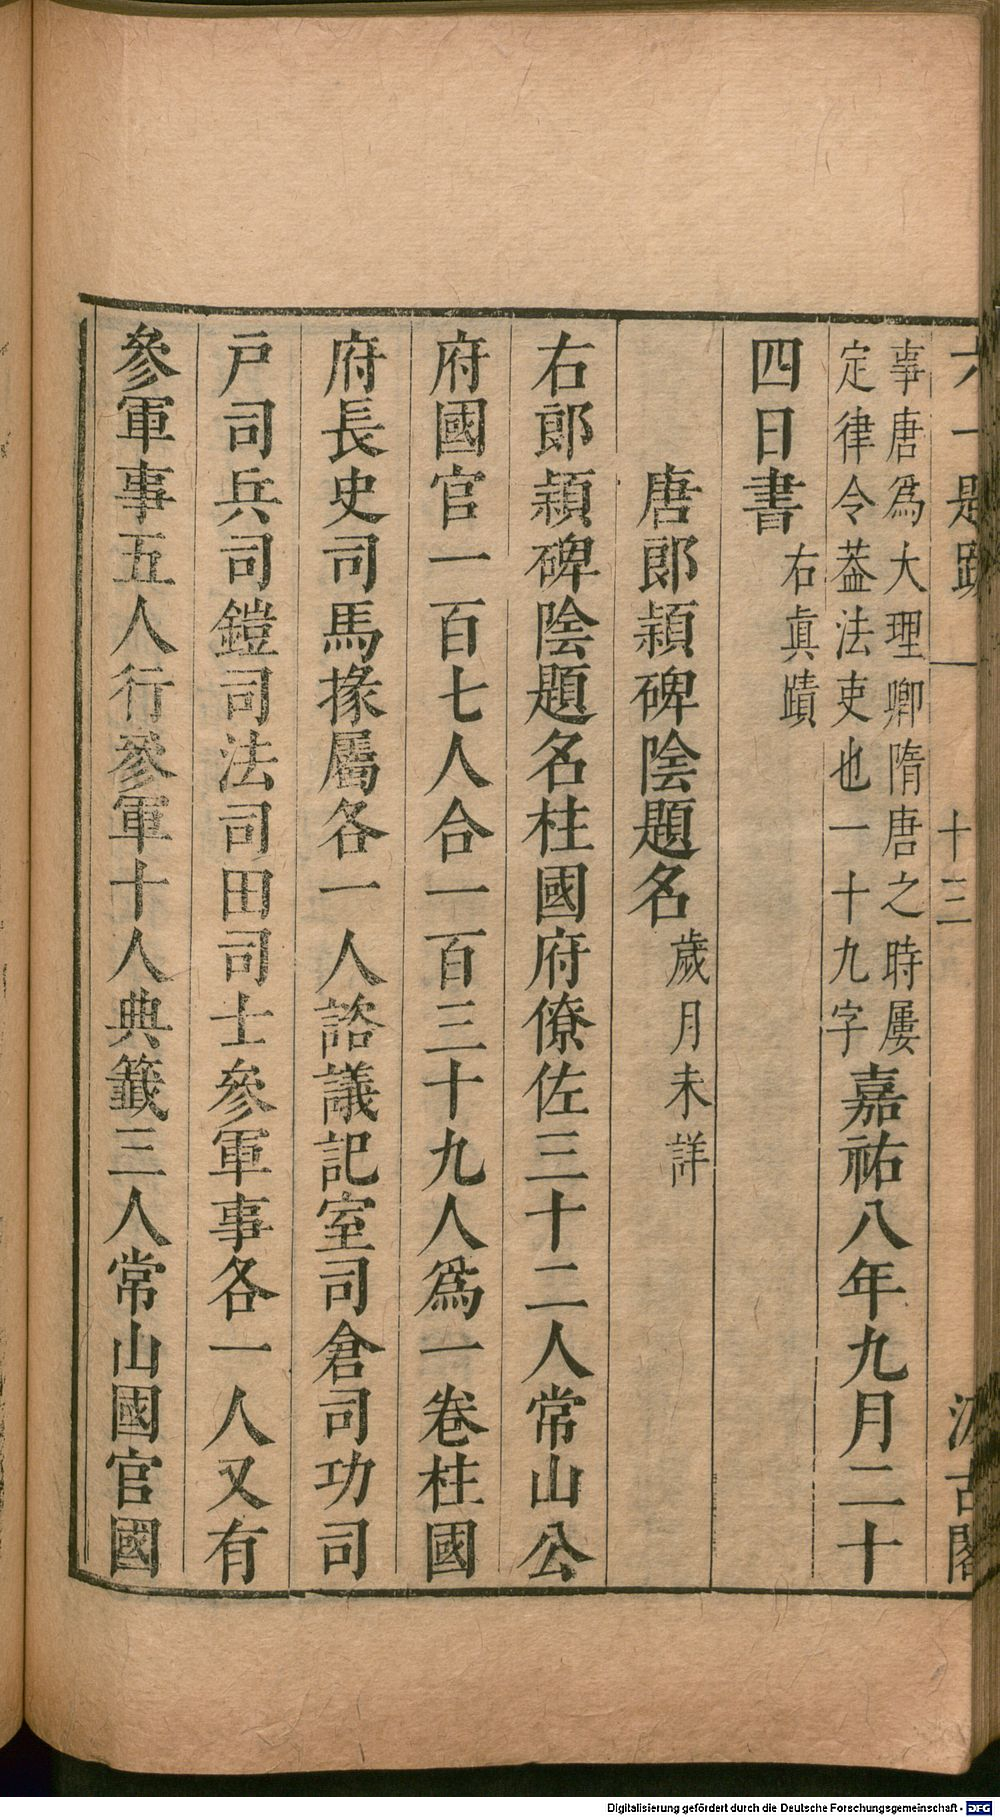 六一題跋 十三 汲古閣
事唐爲大理卿隋唐之時屢
定律令葢法吏也一十九字
嘉祐八年九月二十
四日書
右眞蹟
唐郎頴碑陰題名
歲月未詳
右郎頴碑陰題名柱國府僚佐三十二人常山公
府國官一百七人合一百三十九人爲一卷柱國
府長史司馬掾屬各一人諮議記室司倉司功司
戸司兵司鎧司法司田司士參軍事各一人又有
參軍事五人行參軍十人典籤三人常山國官國
Digitalisierung gefördert durch die Deutsche Forschungsgemeinschaft - DFG